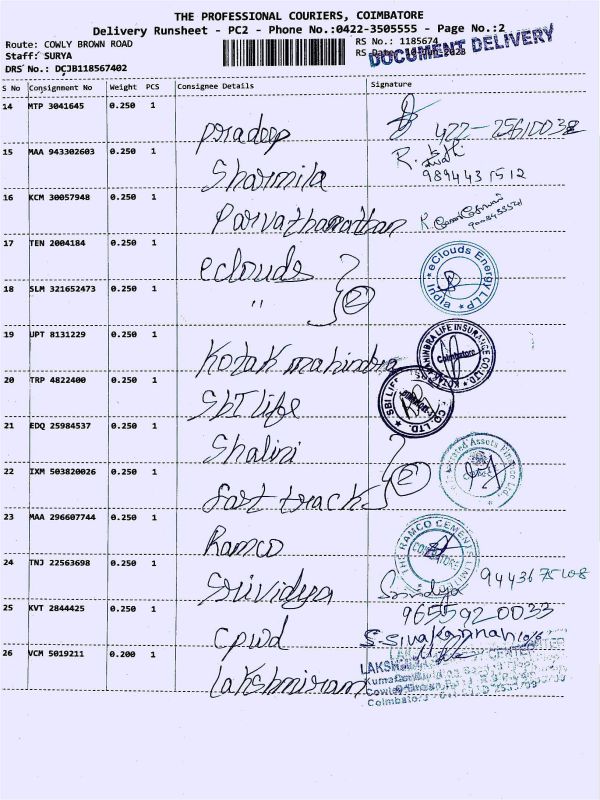 THE PROFESSIONAL COURIERS, COIMBATORE
Delivery Runsheet - PC2 - Phone No.:0422-3505555 - Page No.:2
Route: COWLY BROWN ROAD
Staff: SURYA
DRS No.: DCJB118567402
RS No.: 1185674
RS Date:
DOCUMENT DELIVERY
S No Consignment No Weight PCS Consignee Details Signature
14 MTP 3041645 0.250 1
pradeep 422-25610038
15 MAA 943302603 0.250 1
Sharmila 9894431512
16 KCM 30057948 0.250 1
Parvathanathan
17 TEN 2004184 0.250 1
eclouds 2 eClouds Energy LLP India
18 SLM 321652473 0.250 1
"
19 UPT 8131229 0.250 1
Kotak mahindra KOTAK MAHINDRA LIFE INSURANCE CO.LTD. Coimbatore
20 TRP 4822400 0.250 1
SbI life SBI LIFE CO. LTD.
21 EDQ 25984537 0.250 1
Shalini 2
22 IXM 503820026 0.250 1
fast track Assets Finance Ltd.,
23 MAA 296607744 0.250 1
Ramco THE RAMCO CEMENTS LIMITED COIMBATORE
24 TNJ 22563698 0.250 1
Srividya Srividya
25 KVT 2844425 0.250 1
cpwd 9655920033
S. Sivakannan
26 VCM 5019211 0.200 1
Lakshmiram